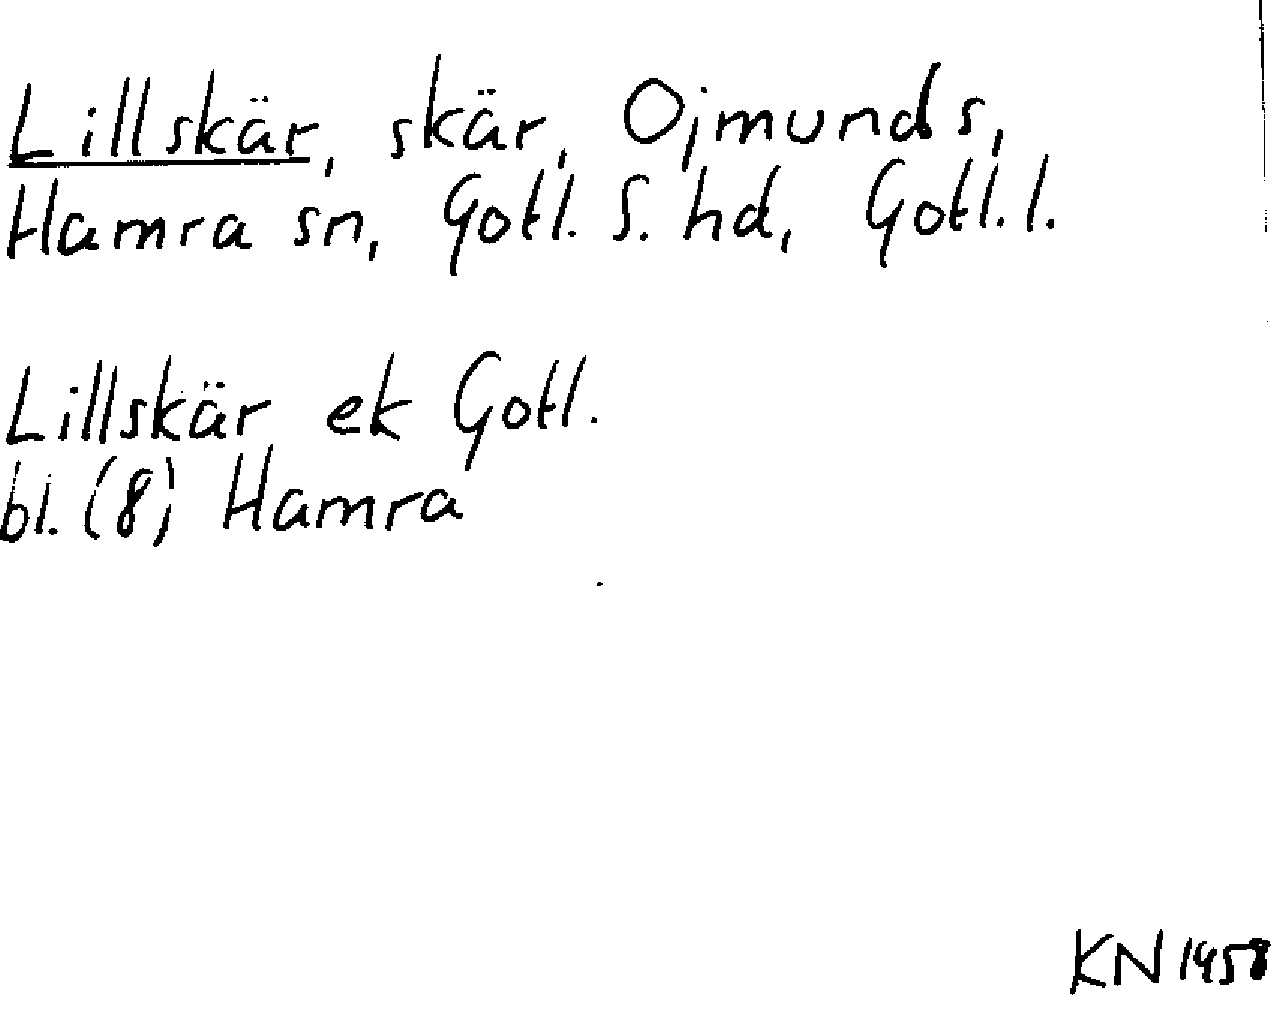 Lillskär, skär, Ojmunds,
Hamra sn, Gotl. S. hd, Gotl. l.
Lillskär ek Gotl.
bl. (8) Hamra
KN 1958